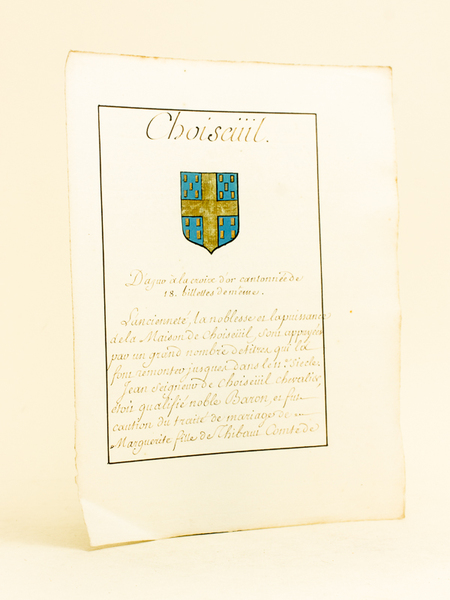 Choiseüil.
D'azur à la croix d'or cantonnée de
18. billettes de même.
L'ancienneté, la noblesse et la puissance
de la Maison de Choiseüil, sont appuyées
par un grand nombre de titres qui la
font remonter jusques dans le 11e Siecle.
Jean Seigneur de Choiseüil chevalier,
étoit qualifié noble Baron, et fut
caution du traité de mariage de
Marguerite fille de Thibaut Comte de